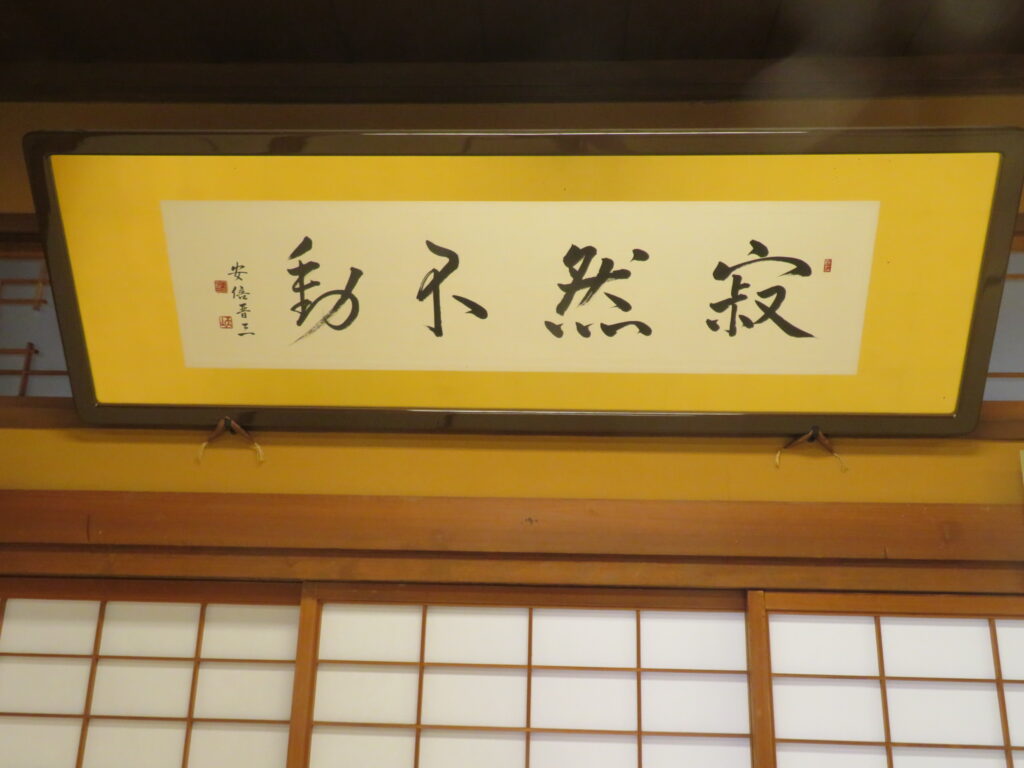 寂然不動
安倍晋三